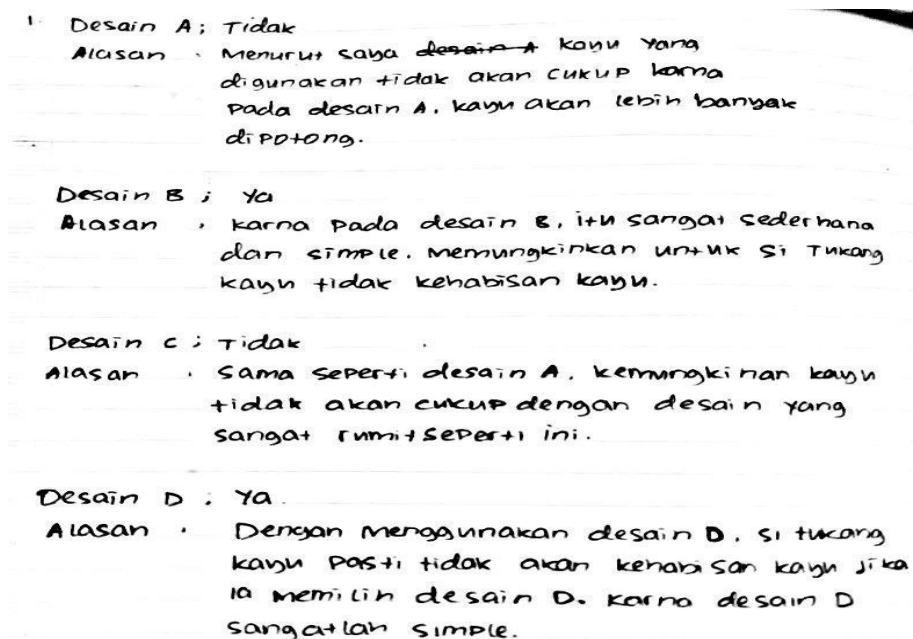 1. Desain A; Tidak
Alasan : Menurut saya desain A kayu yang
digunakan tidak akan cukup karna
pada desain A. kayu akan lebih banyak
dipotong.
Desain B ; Ya
Alasan : karna pada desain B, itu sangat sederhana
dan simple. Memungkinkan untuk si Tukang
kayu tidak kehabisan kayu.
Desain C ; Tidak
Alasan : Sama seperti desain A. kemungkinan kayu
tidak akan cukup dengan desain yang
sangat rumit seperti ini.
Desain D : Ya.
Alasan : Dengan menggunakan desain D. si tukang
kayu pasti tidak akan kehabisan kayu jika
ia memilih desain D. karna desain D
sangatlah simple.